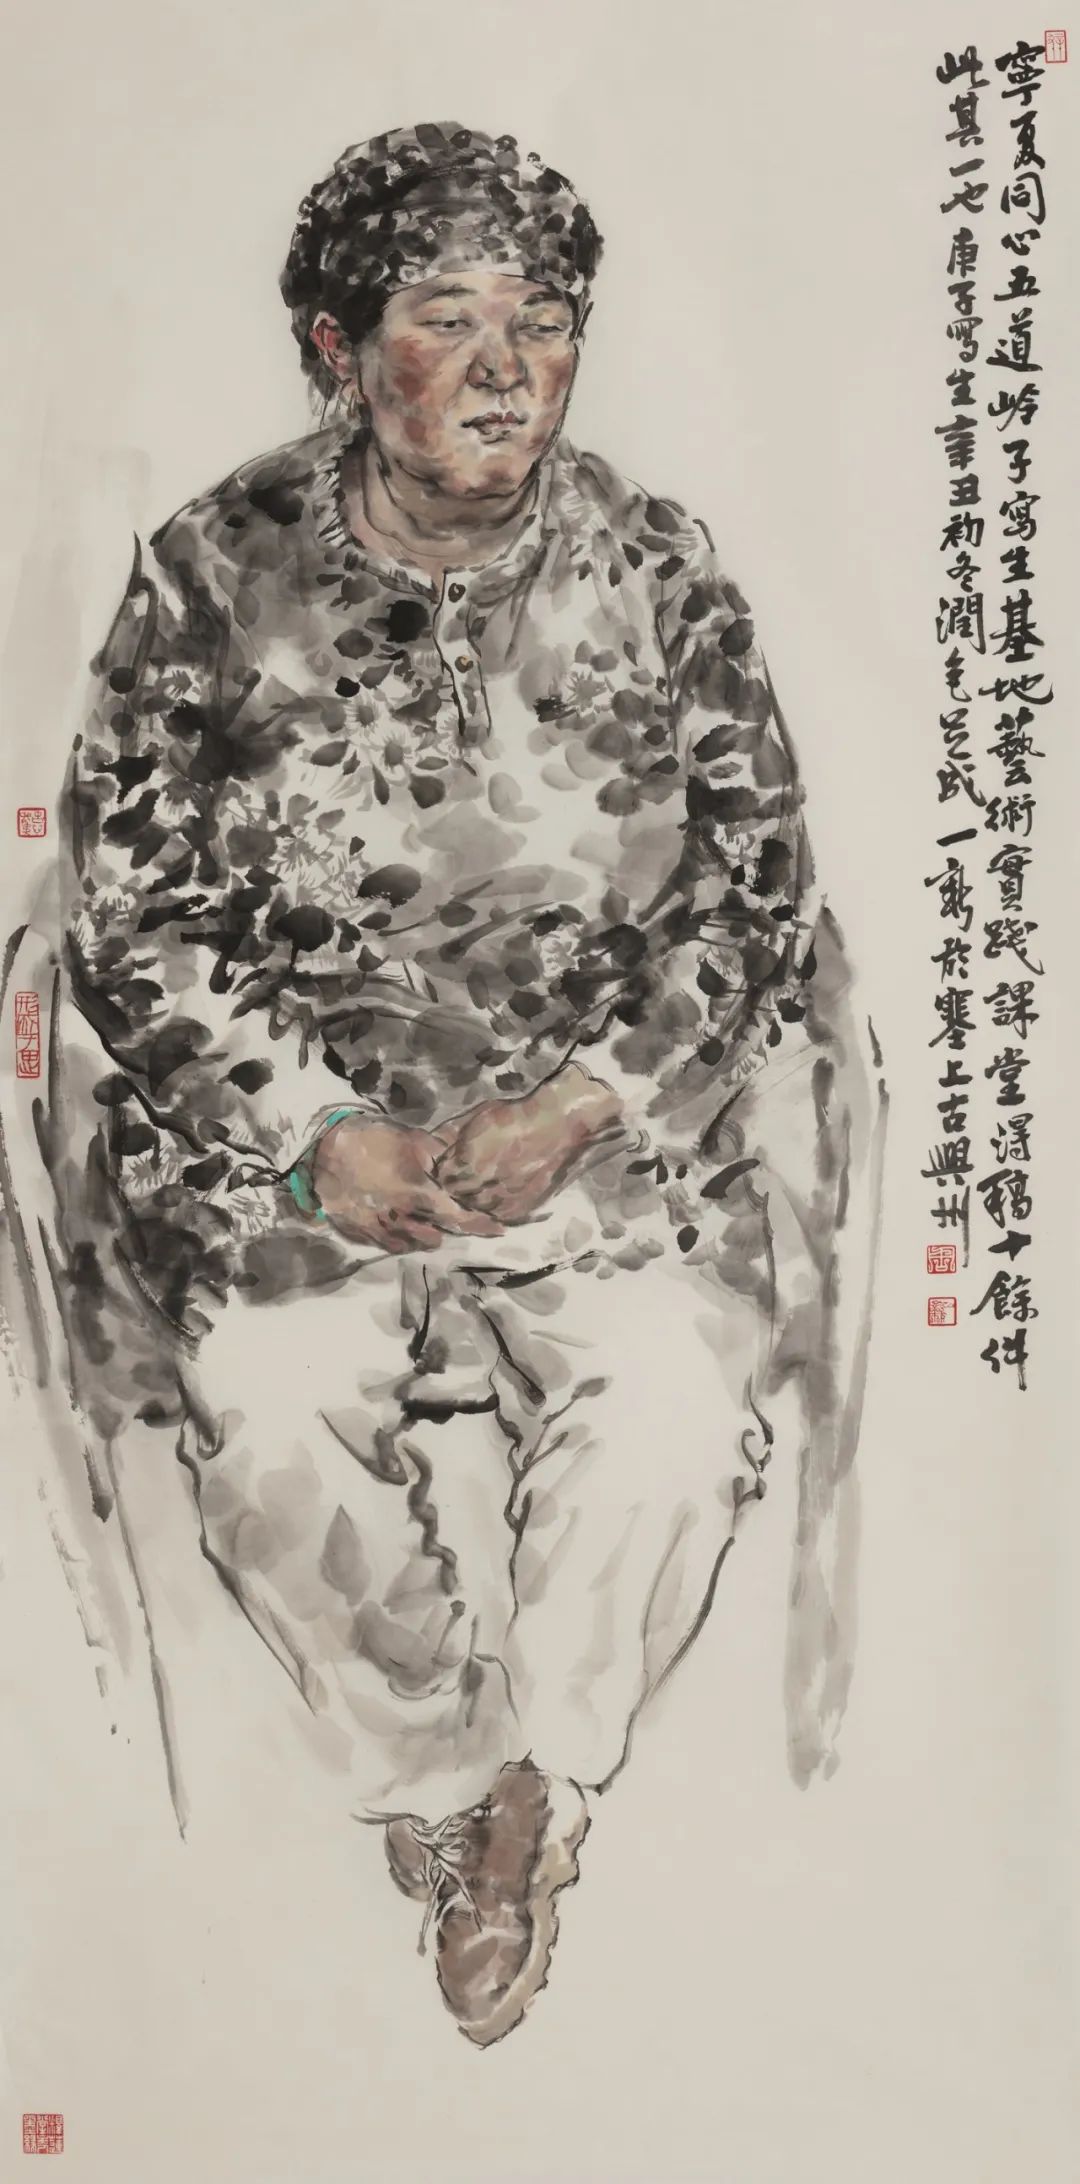 寧夏同心五道岭子寫生基地藝術實踐課堂得稿十餘件
此其一也庚子寫生辛丑初冬潤色呈成一新於塞上古興州